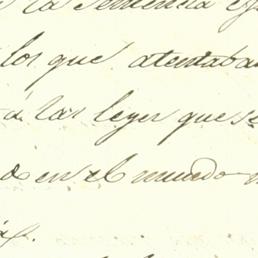 la sentencia
los que atentaba
á las leyes que se
en el mundo